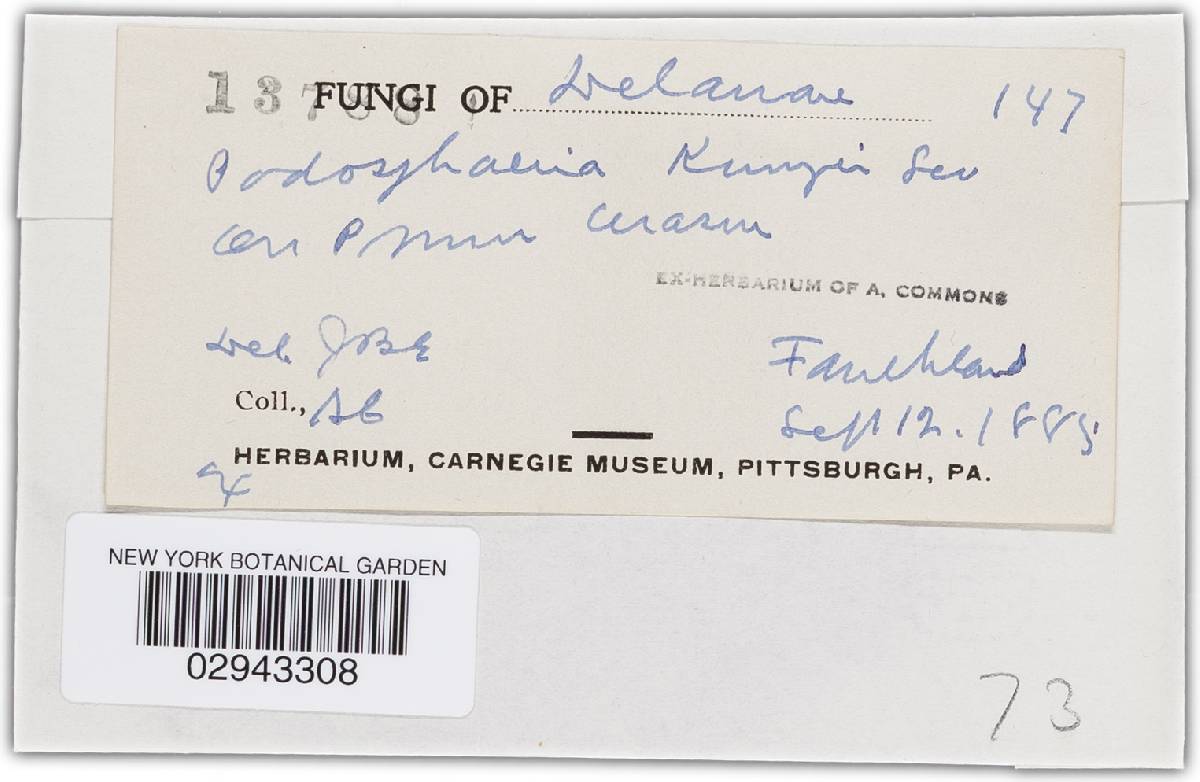 FUNGI OF Delaware 147
Podosphaeria Kunzei Lev
On Prunus Cerasus
EX-HERBARIUM OF A. COMMONS
Det. JBE Faulkland
Coll., AC Sept 12. 1885
HERBARIUM, CARNEGIE MUSEUM, PITTSBURGH, PA.
NEW YORK BOTANICAL GARDEN
02943308
73